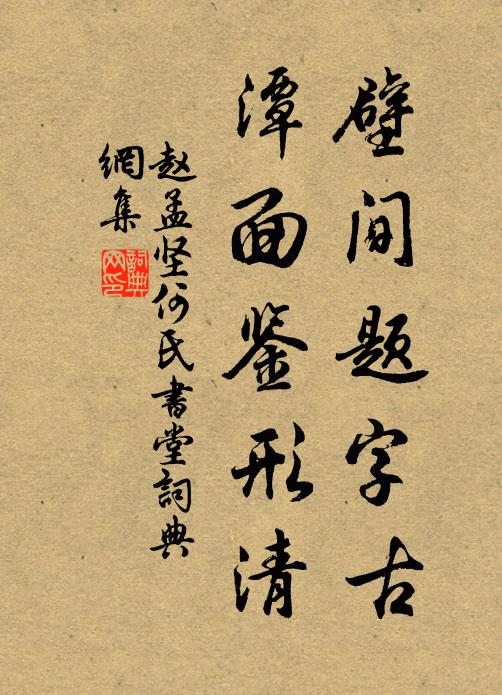 壁间题字古
潭面鉴形清
赵孟坚何氏书堂詞典
網集
詞典
网印